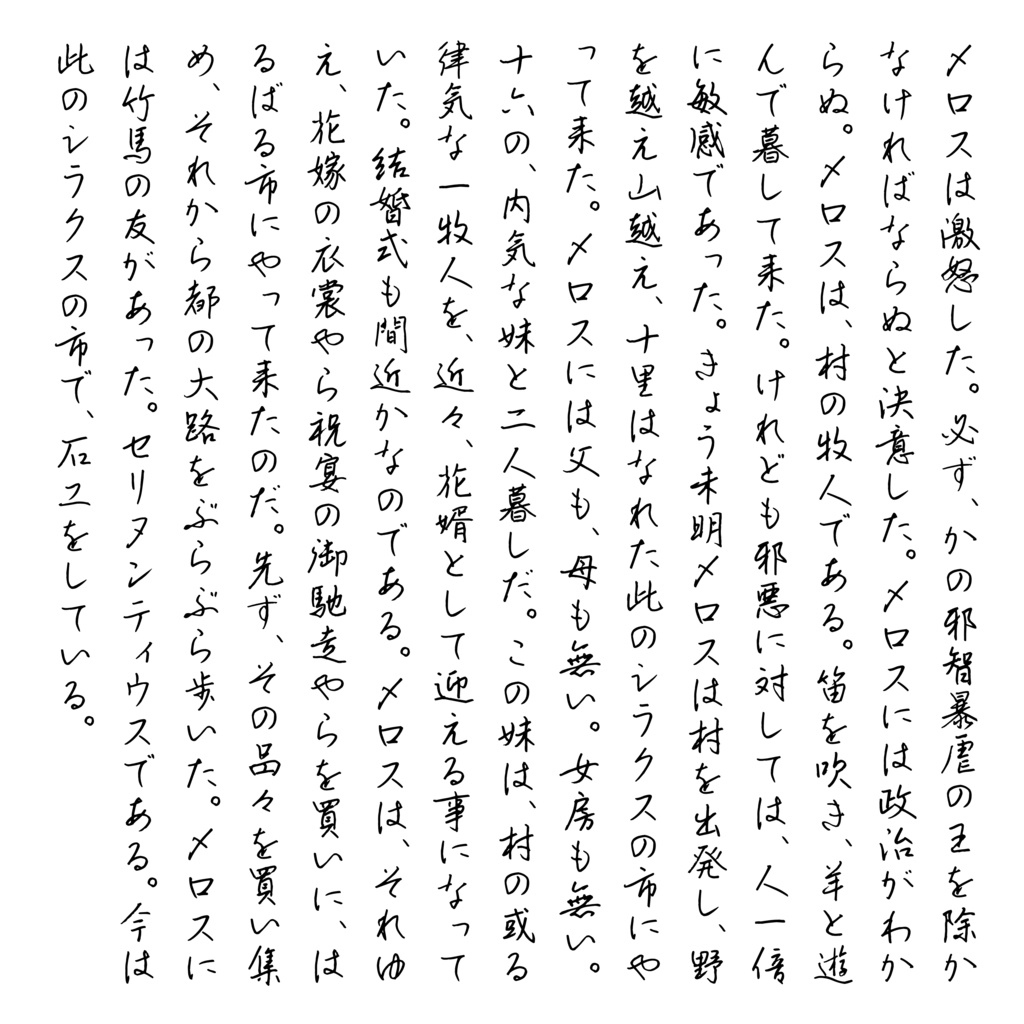 メロスは激怒した。必ず、かの邪智暴虐の王を除か
なければならぬと決意した。メロスには政治がわか
らぬ。メロスは、村の牧人である。笛を吹き、羊と遊
んで暮して来た。けれども邪悪に対しては、人一倍
に敏感であった。きょう未明メロスは村を出発し、野
を越え山越え、十里はなれた此のシラクスの市にや
って来た。メロスには父も、母も無い。女房も無い。
十六の、内気な妹と二人暮しだ。この妹は、村の或る
律気な一牧人を、近々、花婿として迎える事になって
いた。結婚式も間近かなのである。メロスは、それゆ
え、花嫁の衣裳やら祝宴の御馳走やらを買いに、は
るばる市にやって来たのだ。先ず、その品々を買い集
め、それから都の大路をぶらぶら歩いた。メロスに
は竹馬の友があった。セリヌンティウスである。今は
此のシラクスの市で、石工をしている。